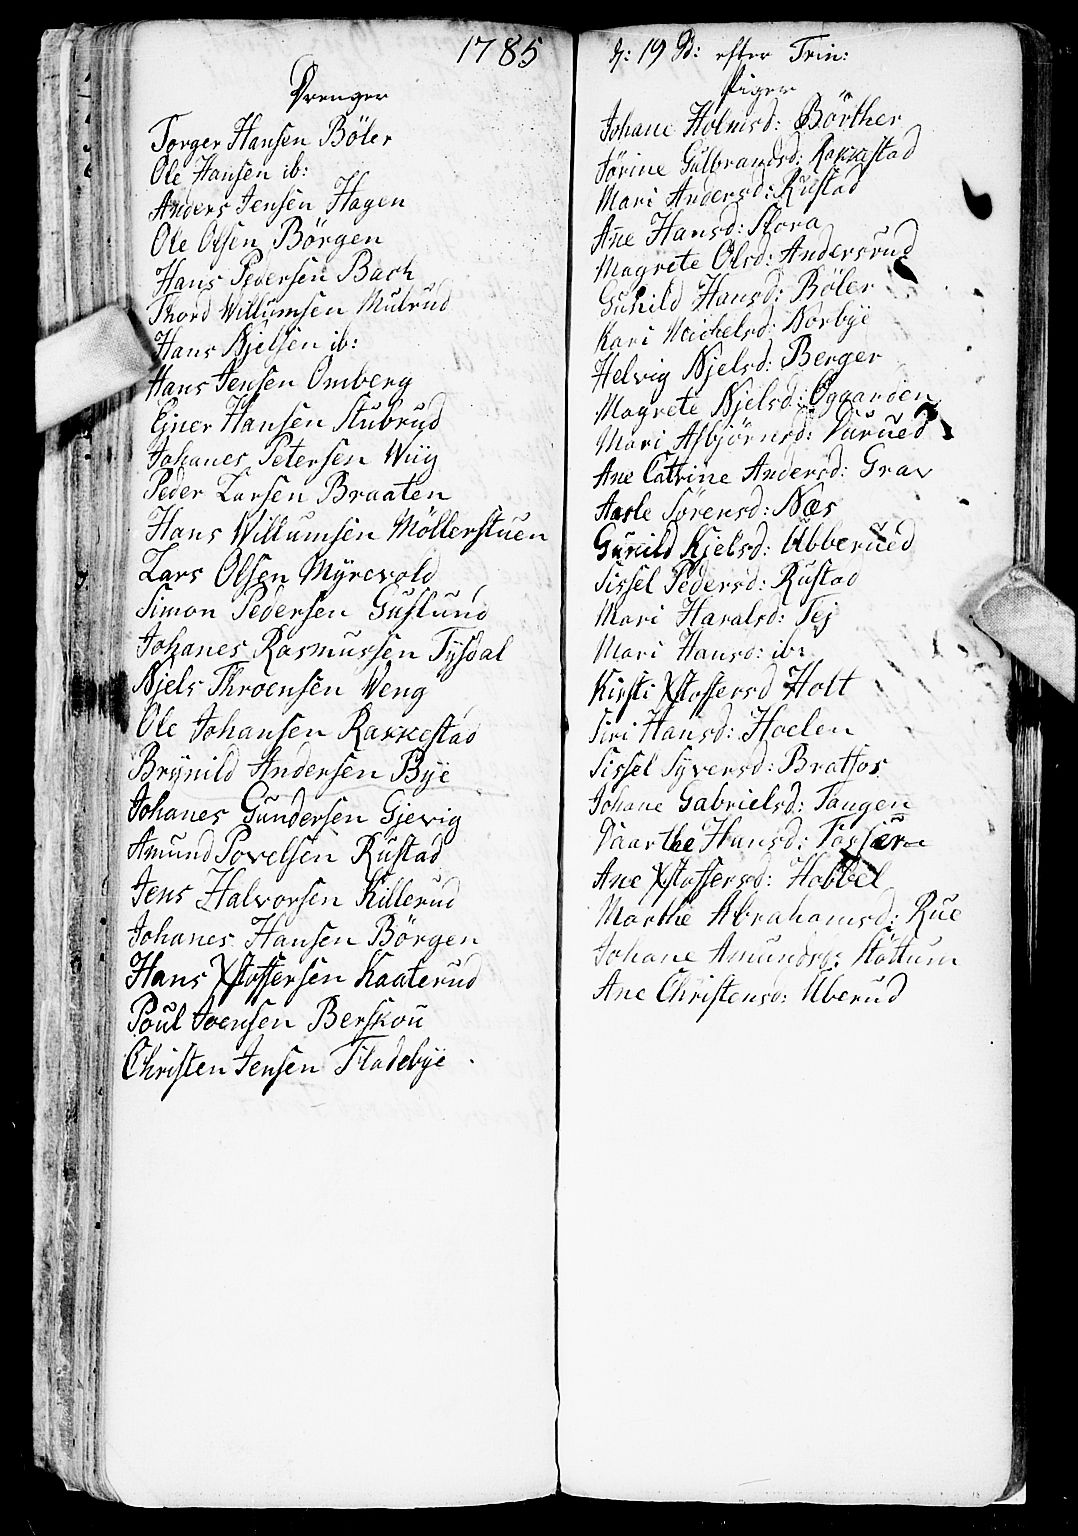 1785
Drenger
Torger Hansen Böler
Ole Hansen ib:
Anders Jensen Hagen
Ole Olsen Börgen
Hans Pedersen Bach
Thord Willumsen Mulrud
Hans Njelsen ib:
Hans Jensen Omberg
Ejner Hansen Stubrud
Johanes Petersen Wiig
Peder Larsen Braaten
Hans Willumsen Möllerstuen
Lars Olsen Myrevold
Simon Pedersen Guslund
Johanes Rasmussen Tysdal
Njels Throensen Weng
Ole Johansen Rakkestad
Brynild Andersen Bye
Johanes Gundersen Gjevig
Amund Povelsen Rustad
Jens Halvorsen Killerud
Johanes Hansen Börgen
Hans Xstoffersen Kaaterud
Poul Joensen Berskou
Christen Jensen Fladebye
19 S: efter Trin:
Piger
Johane Holmsd: Börther
Sörine Gulbrandsd: Rakkestad
Mari Andersd: Rustad
Ane Hansd: Flora
Magrete Olsd: Andersrud
Gunild Hansd: Böler
Kari Michelsd: Norbye
Helvig Njelsd: Berger
Magrete Njelsd: Oggarden
Mari Asbjörnsd:
Ane Catrine Andersd: Grav
Aasle Sörensd: Næs
Gunild Kjelsd: Ubberued
Sissel Pedersd: Rustad
Mari Haralsd: Tej
Mari Hansd: ib:
Kirsti Xstoffersd Holt
Siri Hansd: Hoelen
Sissel Syversd: Bratfos
Johane Gabrielsd: Tangen
Daarthe Hansd: Fossærn
Ane Xstoffersd: Hobbel
Marthe Abrahamsd: Rue
Johane Amundsd: Støttum
Ane Christensd: Uberud